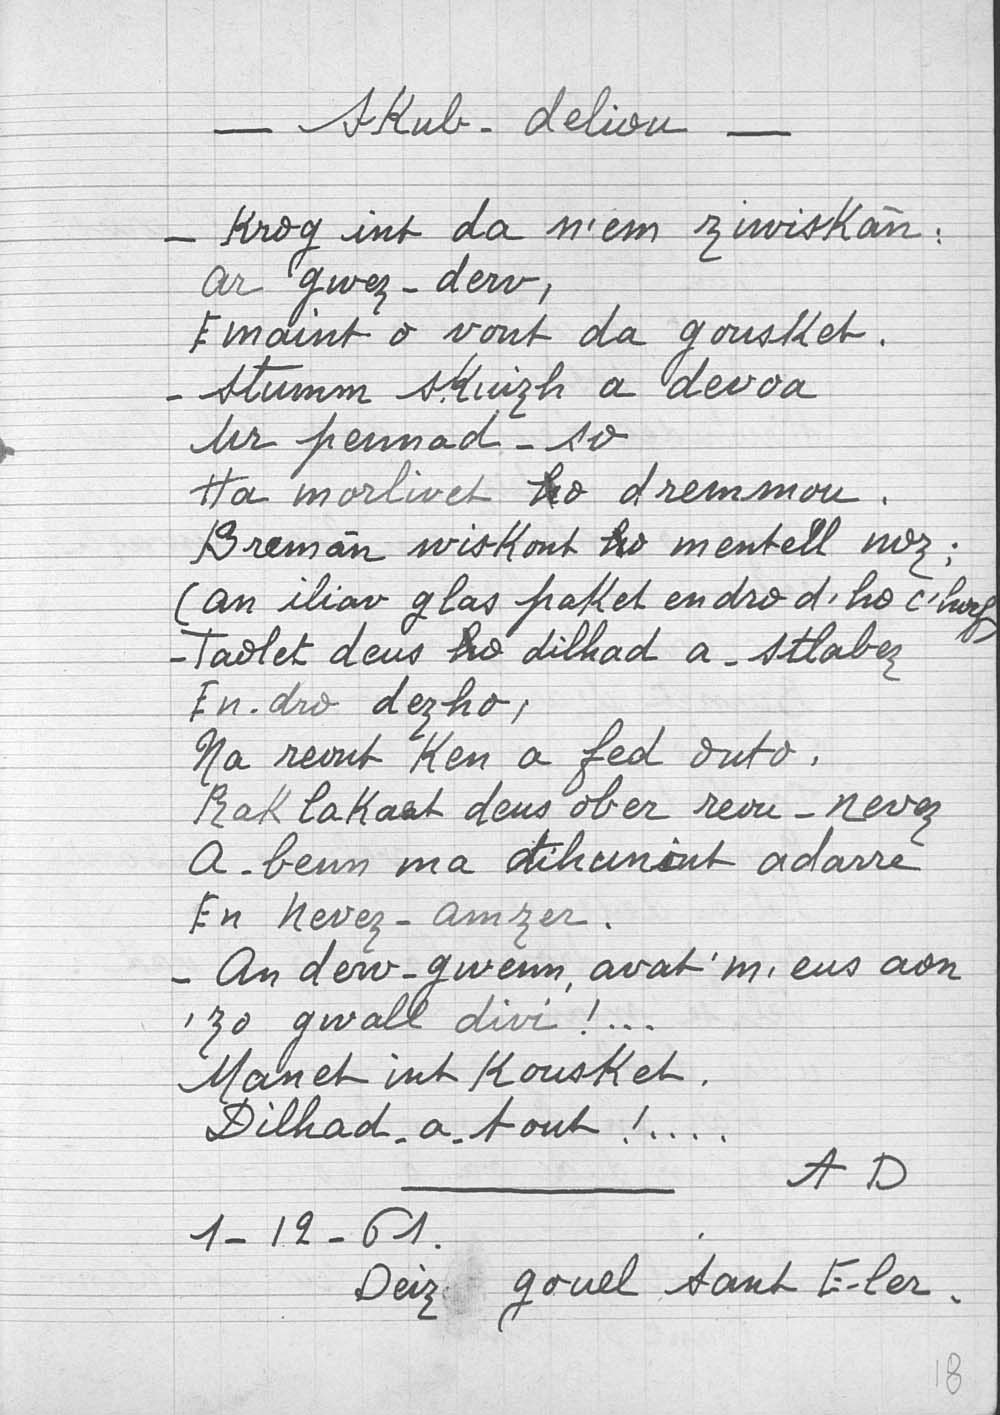 — Skub-deliou —
- Krog int da n'em ziwiskañ :
ar gwez-derv,
Emaint o vont da gousket.
- Stumm skuizh a devoa
Ur pennad-so
Ha morlivet ho dremmou.
Bremañ wiskont ho mentell noz ;
(an iliav glas paket endro d'ho c'horf)
- Taolet deus ho dilhad a-stlabez
En-dro dezho,
Na reont Ken a fed outo.
Rak lakaat deus ober reou-nevez
A-benn ma tihunint adarre
En Nevez-amzer.
- An derv-gwenn, avat 'm, eus aon
'zo gwall divi !...
Manet int Kousket.
Dilhad-a-tout !....
A D
1-12-61.
Deiz gouel Sant E-ler.
18